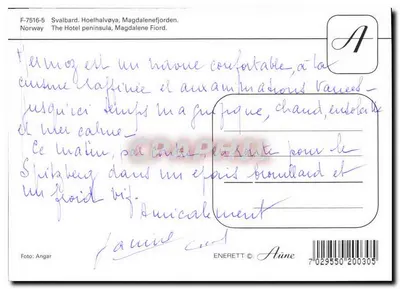 F-7516-5 Svalbard. Hoelhalvøya, Magdalenefjorden.
Norway The Hotel peninsula, Magdalene Fiord.
A
Mermoz est un navire confortable, à la
cuisine raffinée et aux animations variées
jusqu'ici temps magnifique, chaud, ensoleillé
et mer calme.
Ce matin, pour le
Spitzberg dans un épais brouillard et
un froid vif.
Amicalement
Foto: Anger
ENERETT © Aune
7 029550 200305